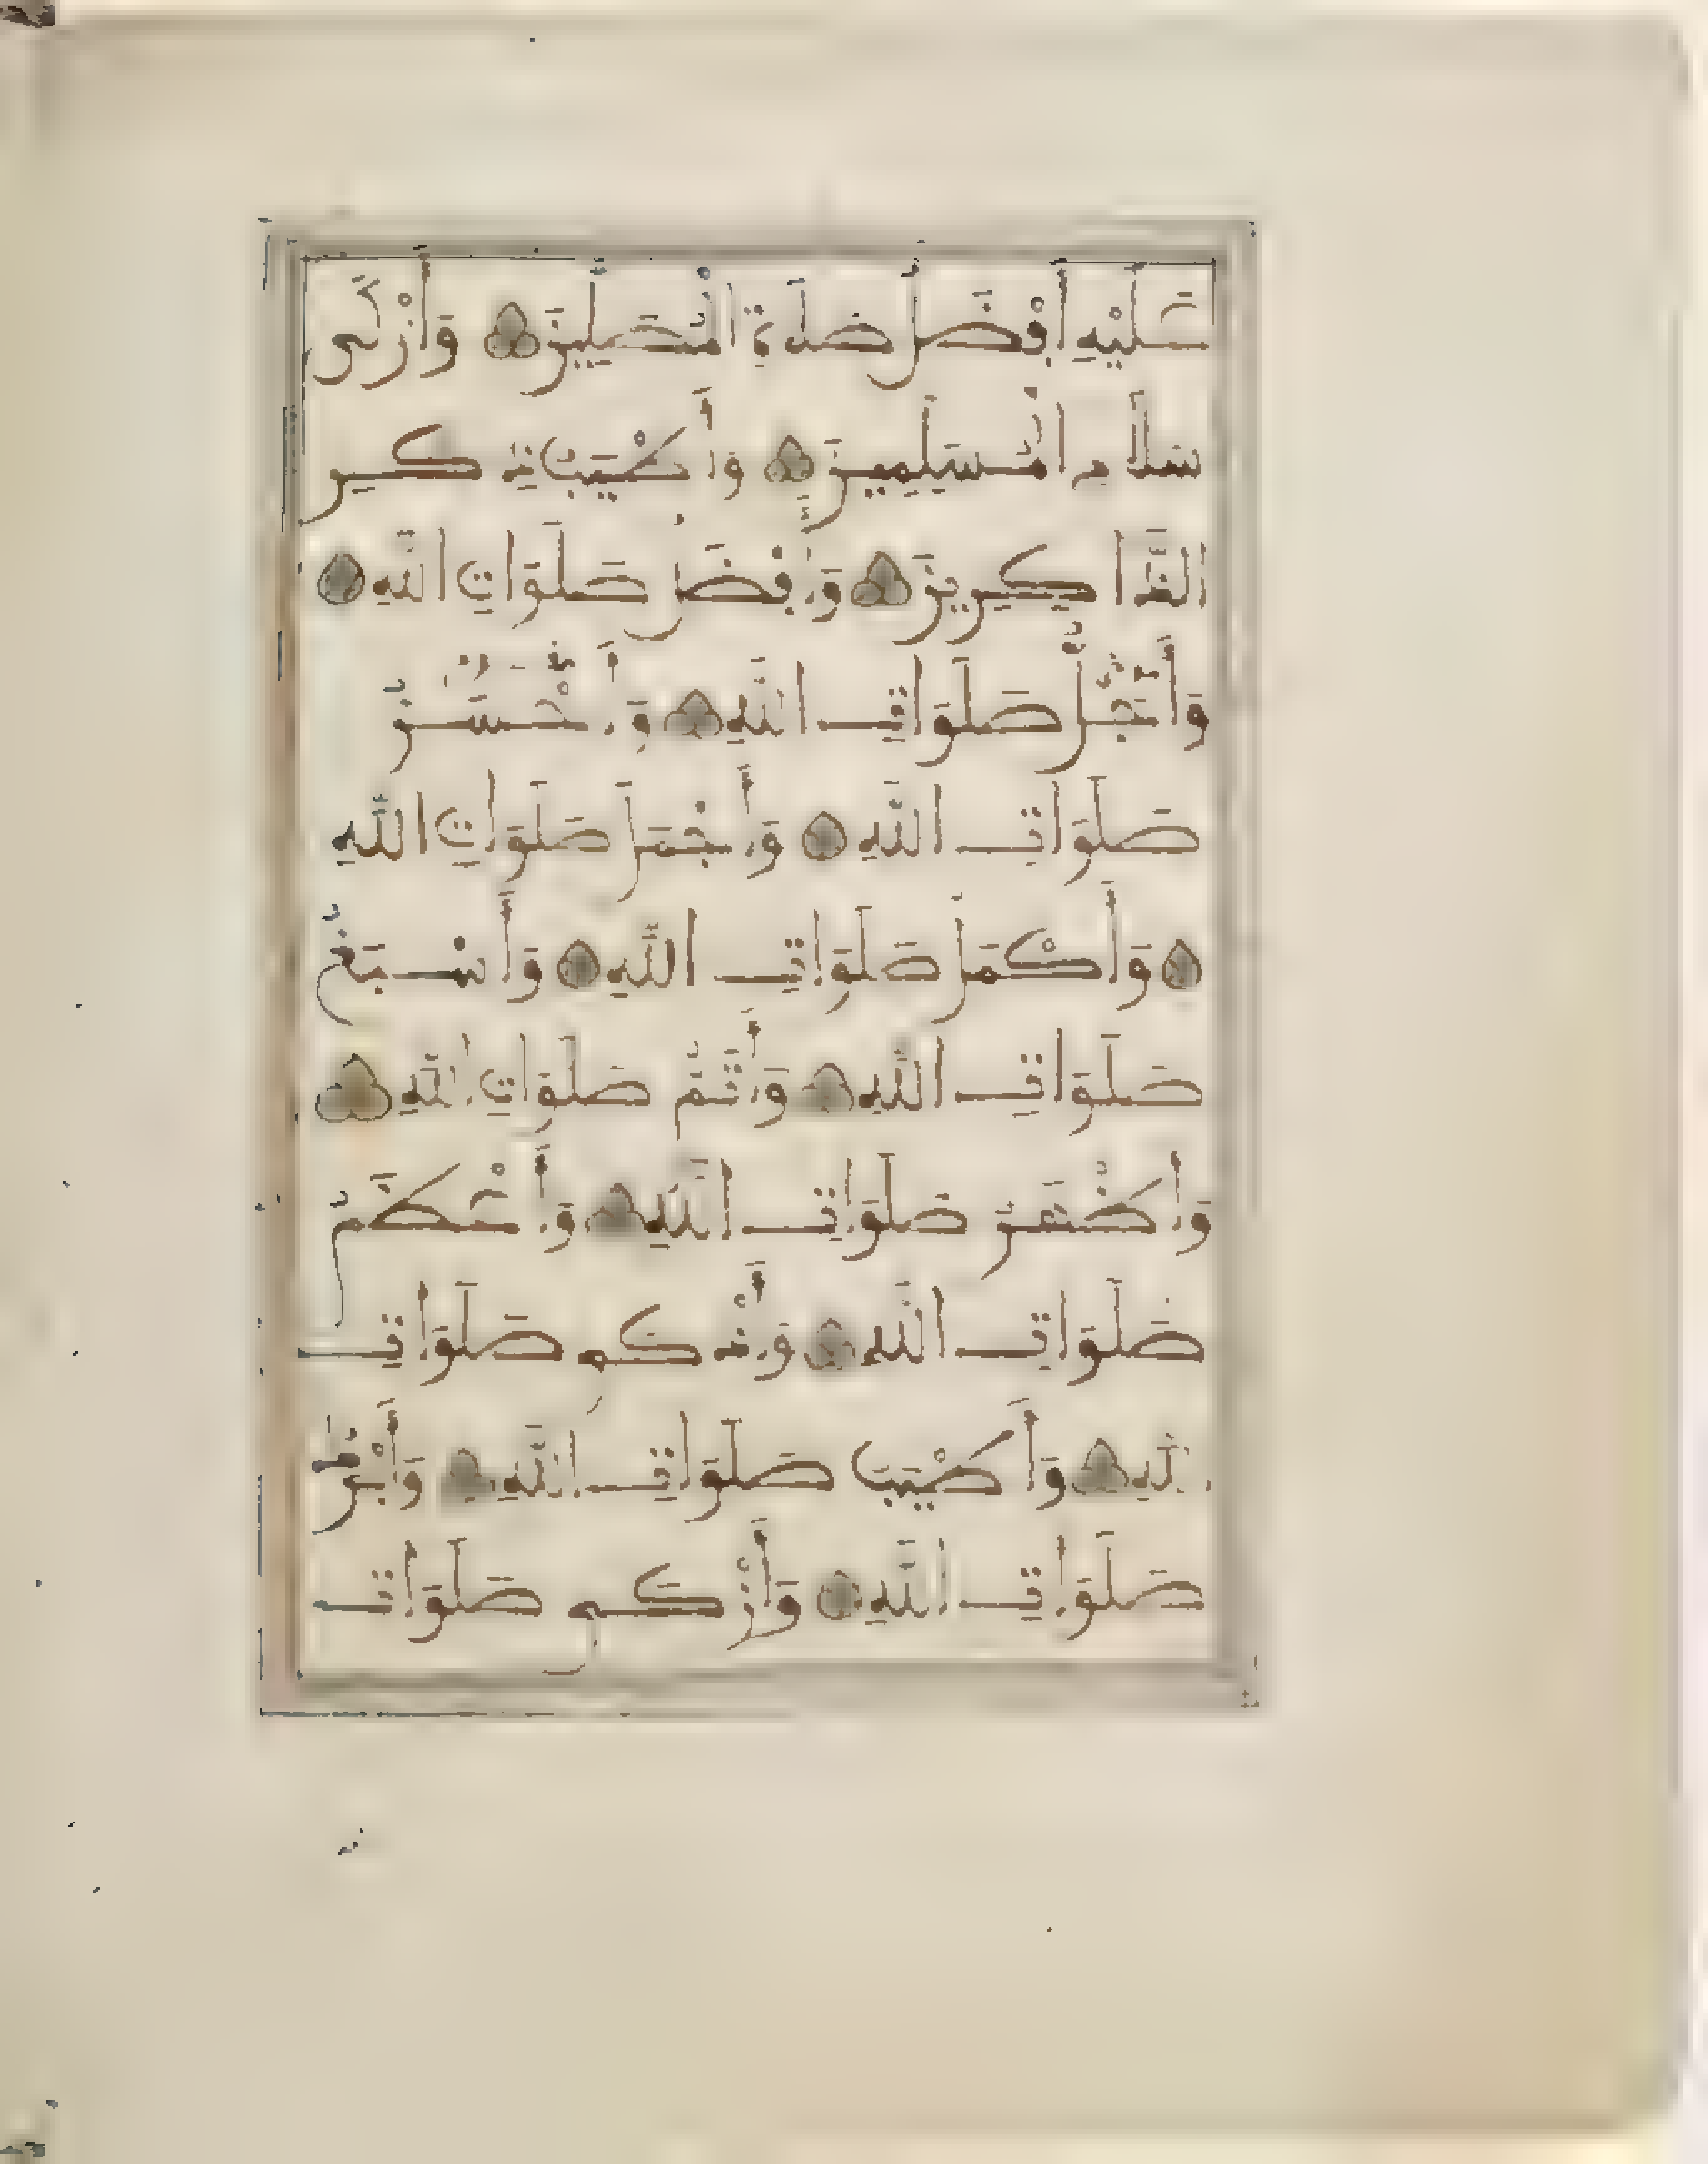 عَلَيْهِ أَفْضَلُ صَلَاةِ الْمُصَلِّينَ وَأَزْكَى
سَلَامِ الْمُسَلِّمِينَ وَأَطْيَبُ ذِكْرِ
الذَّاكِرِينَ وَأَفْضَلُ صَلَوَاتِ اللَّهِ
وَأَجَلُّ صَلَوَاتِ اللَّهِ وَأَحْسَنُ
صَلَوَاتِ اللَّهِ وَأَجْمَلُ صَلَوَاتِ اللَّهِ
وَأَكْمَلُ صَلَوَاتِ اللَّهِ وَأَسْبَغُ
صَلَوَاتِ اللَّهِ وَأَتَمُّ صَلَوَاتِ اللَّهِ
وَأَظْهَرُ صَلَوَاتِ اللَّهِ وَأَعْظَمُ
صَلَوَاتِ اللَّهِ وَأَذْكَى صَلَوَاتِ
اللَّهِ وَأَطْيَبُ صَلَوَاتِ اللَّهِ وَأَبْرَكُ
صَلَوَاتِ اللَّهِ وَأَزْكَى صَلَوَاتِ